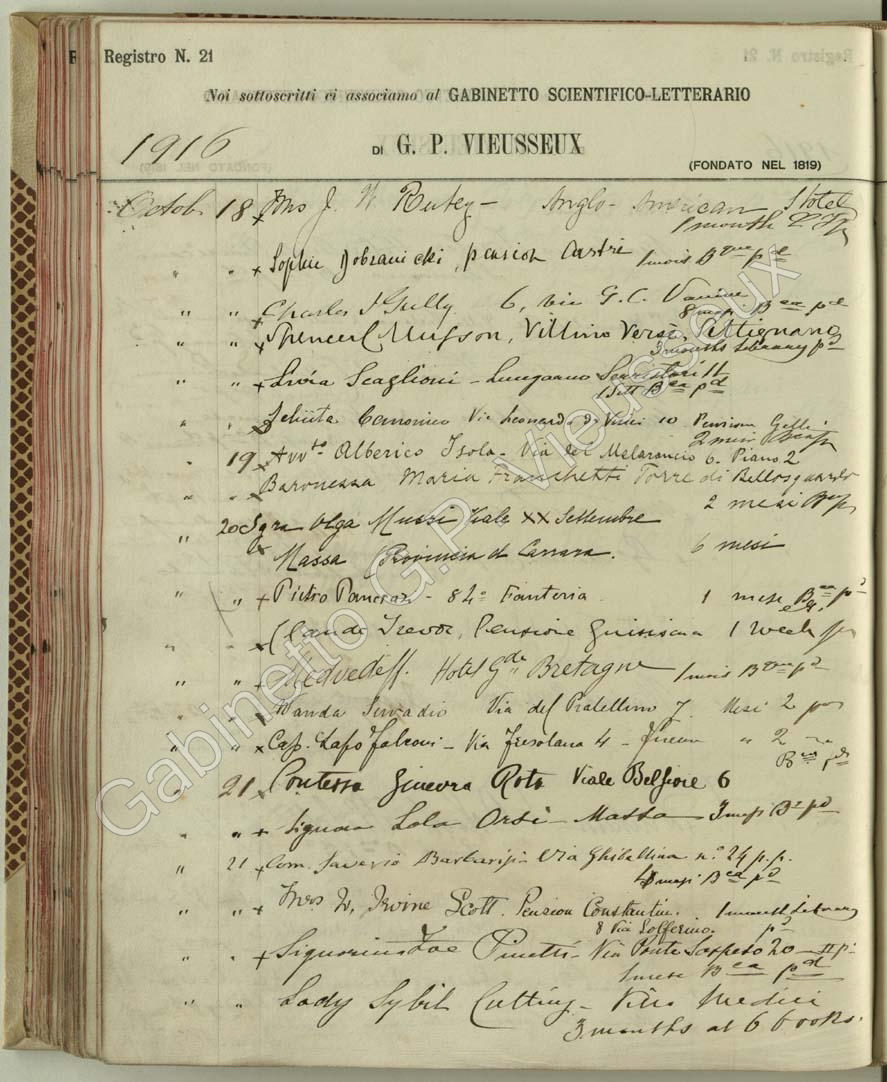 Registro N. 21
Noi sottoscritti ci associamo al GABINETTO SCIENTIFICO-LETTERARIO
1916
DI G. P. VIEUSSEUX
(FONDATO NEL 1819)
Octob. 18 Mrs J. W. - Anglo-American Hotel
1 month
" " Sophie , pension 1 mois pd
" " Charles J 6, via G. C. Vanini
8 mesi Bca pd
" " Spencer C Musson, Villino Versé, Settignano
3 months Library pd
" " Livia Scaglioni - Lungarno Serristori 11
1 Sett Bca pd
" " Canonico Via Leonardo da Vinci 10 Pensione
2 mesi
19 Avvto Alberico Isola - Via del Melarancio 6. Piano 2
" " Baronessa Maria Franchetti Torre di Bellosguardo
2 mesi
" 20 Sgra Olga Via XX Settembre
Massa Provincia di Carrara. 6 mesi
" " Pietro Pancrazi - 84° Fanteria 1 mese
" " Claude Trevor, Pensione 1 week
" " Medvedeff. Hotel Gde Bretagne 1 mois pd
" " Wanda Servadio Via del Pratellino 7. Mesi 2
" " Cap. Lapo Falconi - Via Fiesolana 4 - " 2
" 21 Contessa Ginevra Rota Viale Belfiore 6
" " Signora Lola Orsi - Massa 3 mesi pd
" 21 Com. Saverio Via Ghibellina n.° 24 p.p.
mesi Bca pd
" " Mrs W. Irvine Scott. Pension Constantin. 1 month Library
8 Via Solferino. pd
" " Signorina Zoe - Via Ponte Sospeso 20 - II p.
1 mese Bca pd
" " Lady Sybil Cutting - Villa Medici
3 months at 6 books.
Gabinetto G.P. Vieusseux